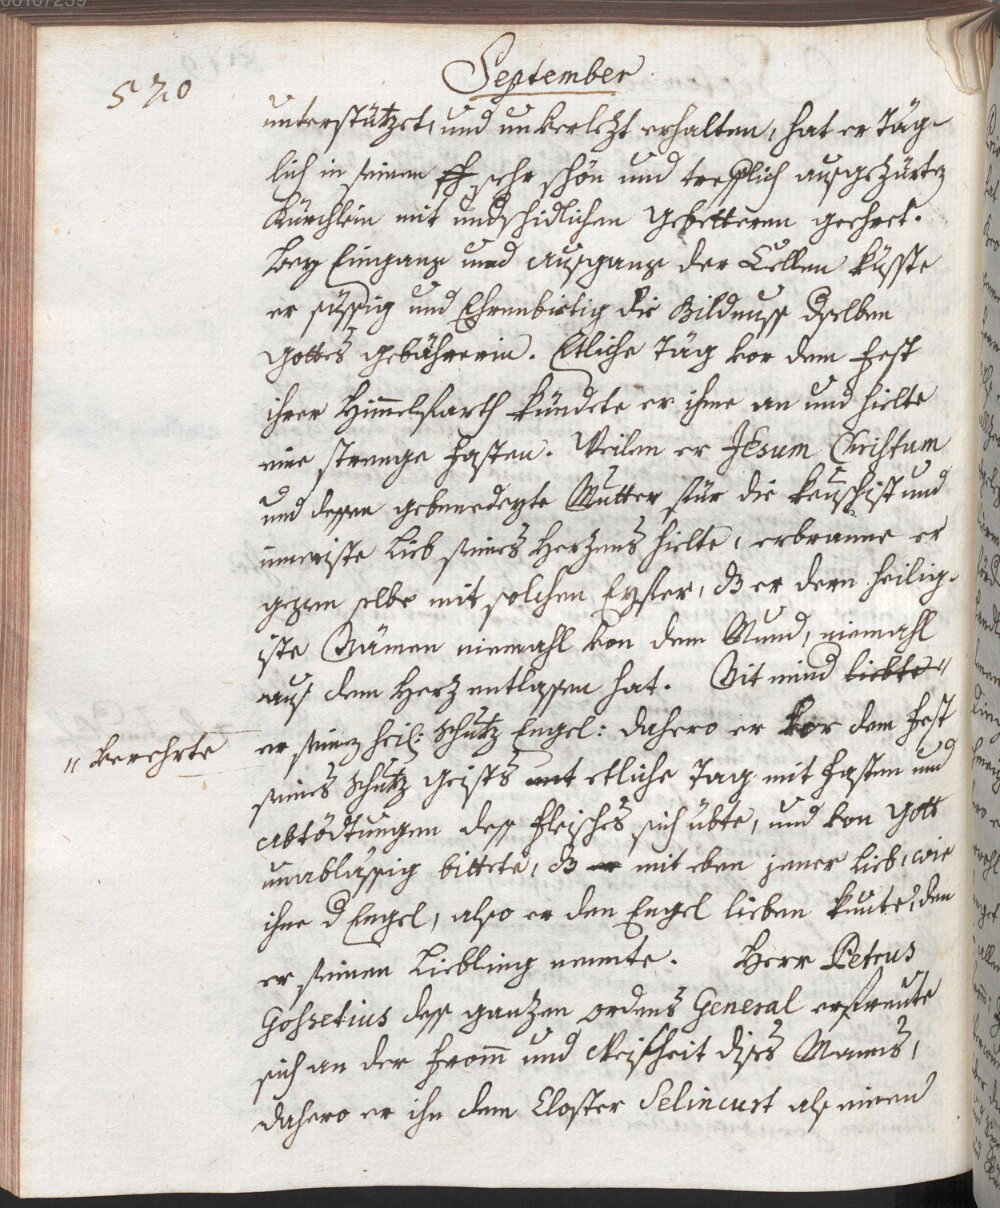 00107239
520
September
unterstützet, und unverlezt erhalten, hat er täg-
lich in seinem sehr schön und trefflich ausgezürten
Kürchlein mit undschidlichen gebetteren geehret.
bey Eingang und ausgang der Cellen küsste
er füssig und Ehrenbietig die Bildnuss dselben
gottes gebährerin. Etliche täg vor dem fest
ihrer Himmelfarth kündete er ihme an und hielte
eine strenge fasten. Weilen er Jesum Christum
und dessen gebenedeyte Mutter für die keuschist und
innerste Lieb seines Herzens hielte, erbranne er
gegen selbe mit solchen Eyfer, dz er dern heilig-
iste Nämen niemahl von dem Mund, niemahl
aus dem Herz entlassen hat. Nit mind liebte "
" verehrte
er seinen heil: Schutz Engel: dahero er vor dem fest
seines Schutz Geists etliche Tag mit fasten und
abtödtungen dess fleisches sich übte, und von Gott
unablässig bittete, dz er mit eben jener Lieb, wie
ihne d Engel, also er den Engel lieben kunte, den
er seinen Liebling nennte. Herr Petrus
Gossetius dess ganzen ordens General erfreute
sich an der fromm und Weisheit dises Manns,
dahero er ihn dem Closter Selincurt als einen